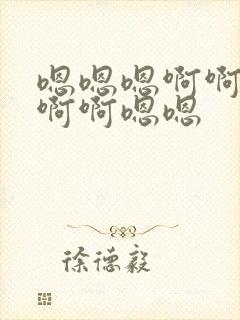 嗯嗯嗯啊啊
啊啊嗯嗯
徐德毅